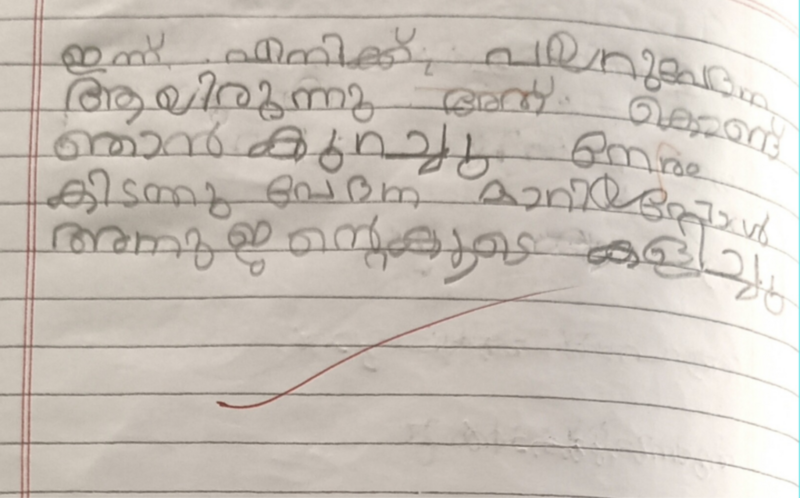 ഇന്ന് എനിക്ക് വയറുവേദന
ആയിരുന്നു അത് കൊണ്ട്
ഞാൻ കുറച്ചു നേരം
കിടന്നു വേദന മാറിയപ്പോൾ
അനുഇന്റെകൂടെ കളിച്ചു